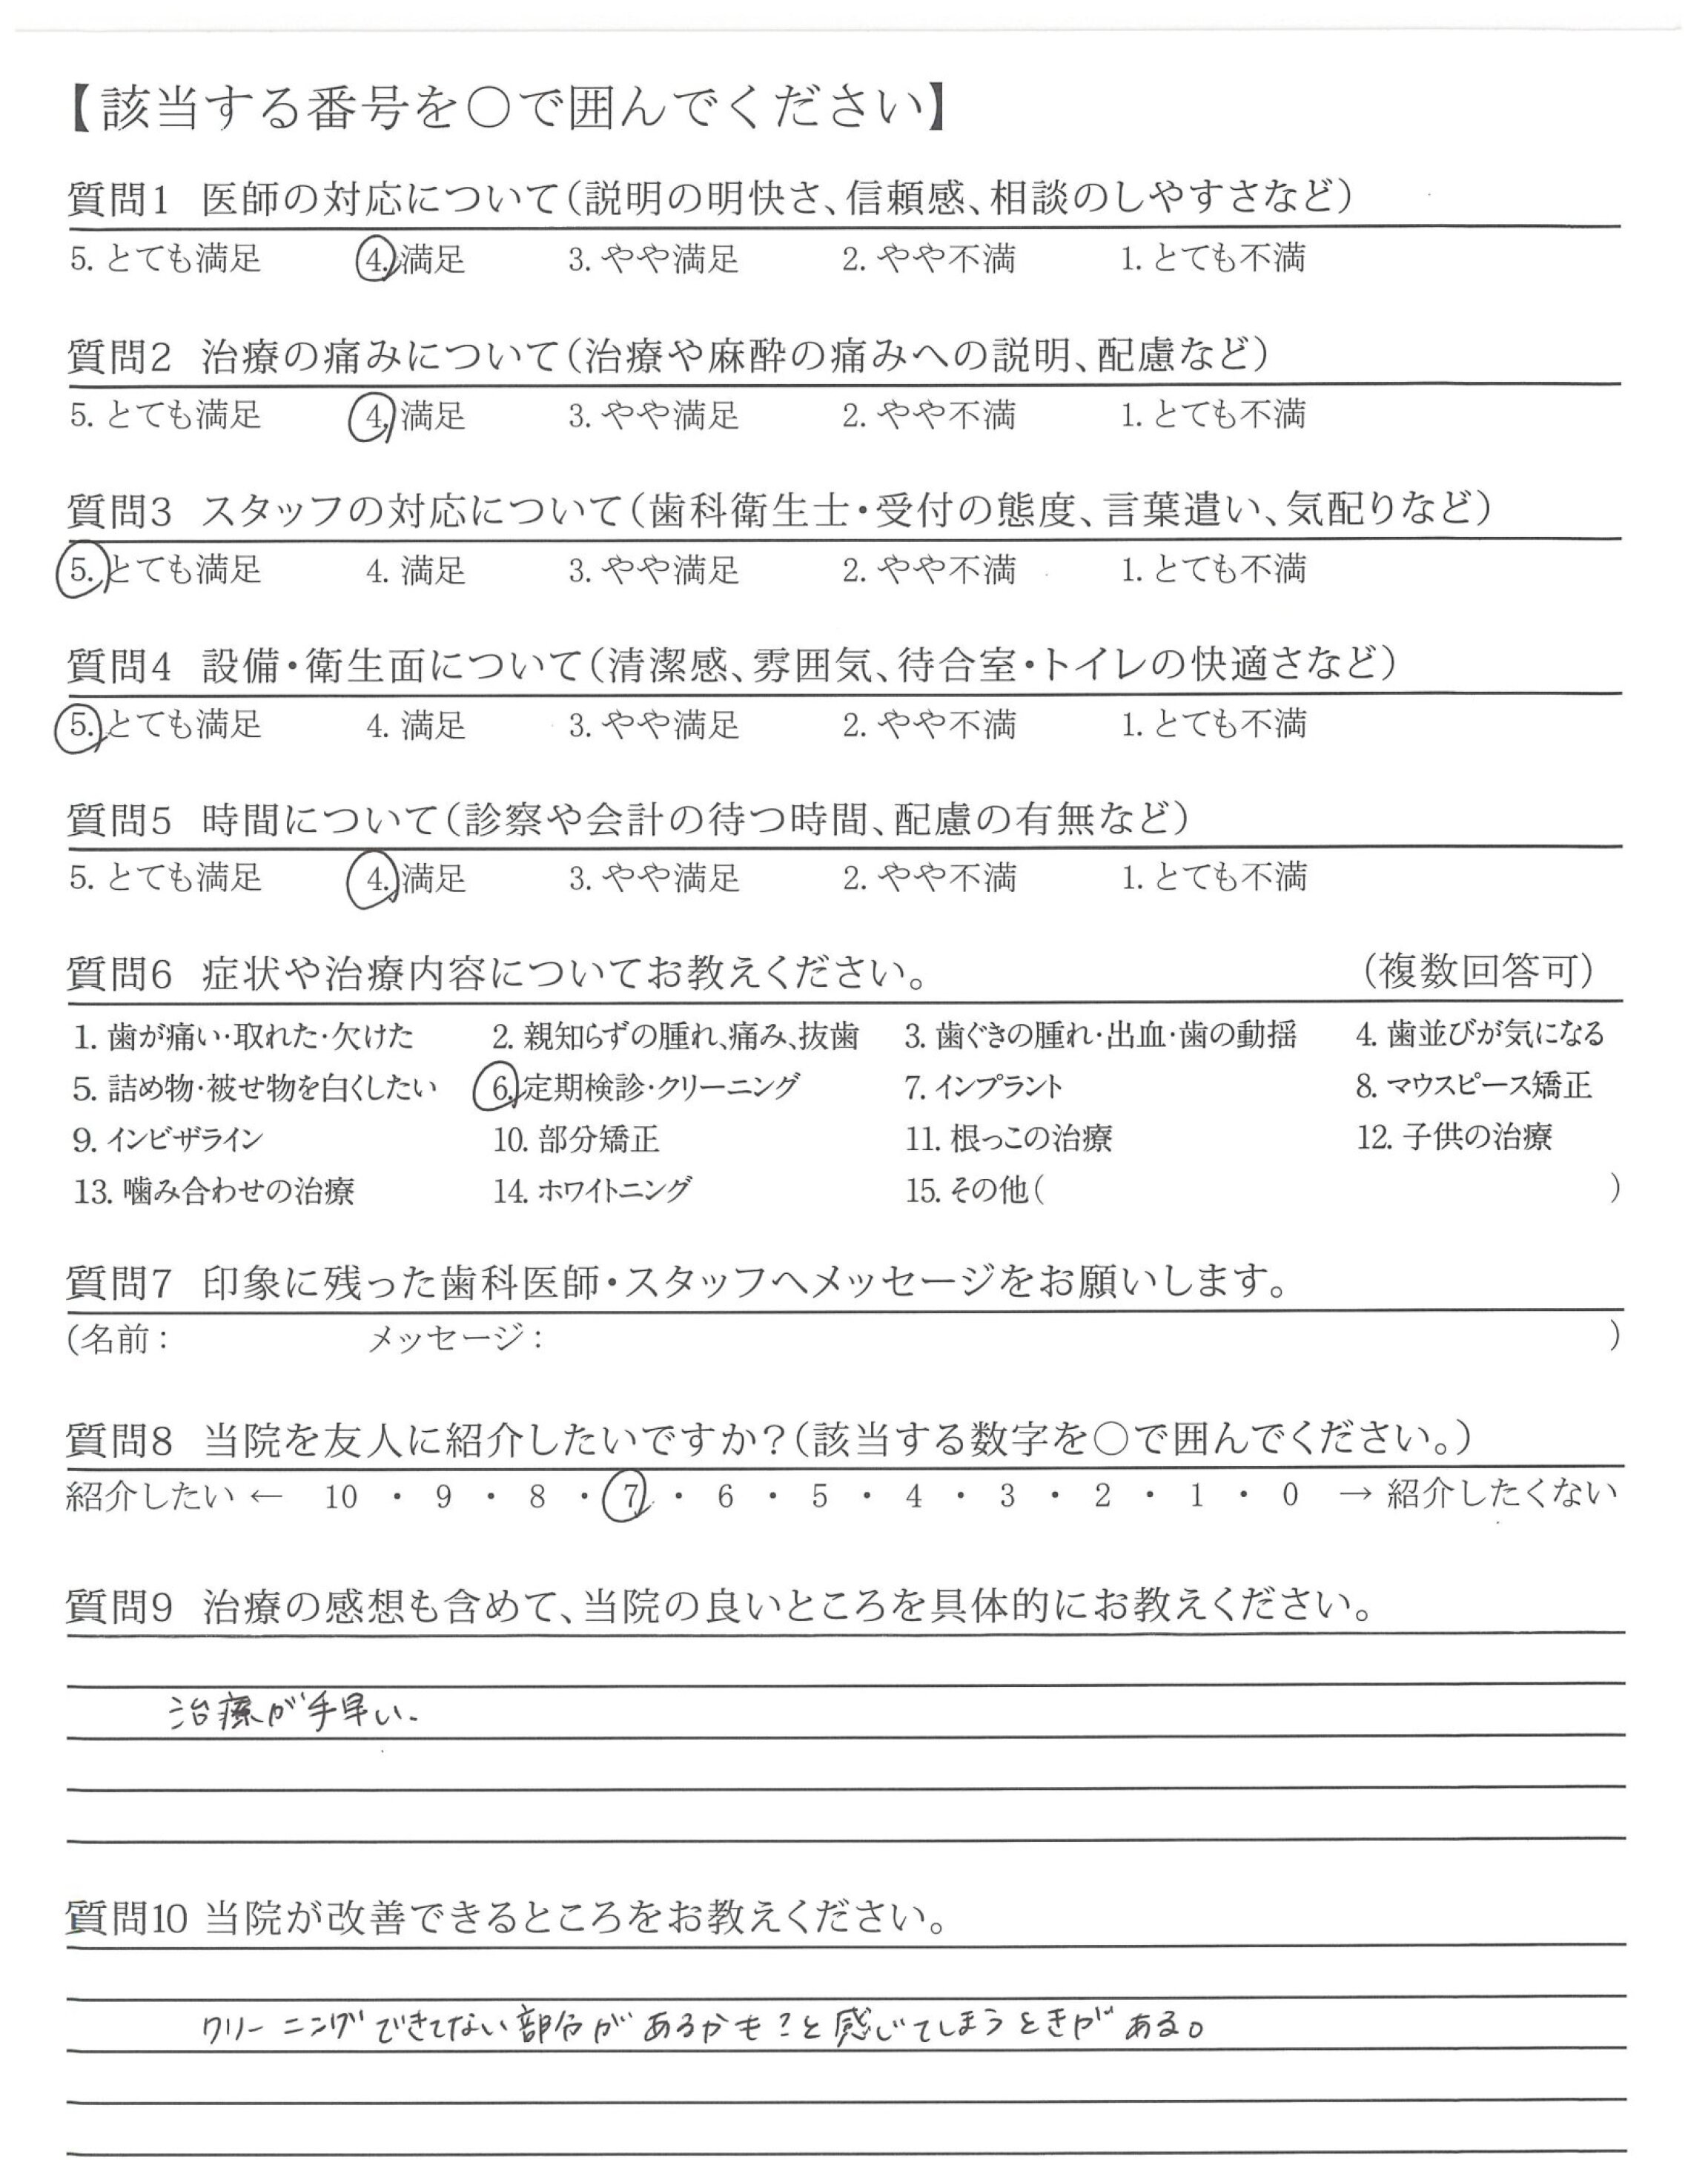 【該当する番号を○で囲んでください】
質問1 医師の対応について(説明の明快さ、信頼感、相談のしやすさなど)
5. とても満足 4. 満足 3. やや満足 2. やや不満 1. とても不満
質問2 治療の痛みについて(治療や麻酔の痛みへの説明、配慮など)
5. とても満足 4. 満足 3. やや満足 2. やや不満 1. とても不満
質問3 スタッフの対応について(歯科衛生士・受付の態度、言葉遣い、気配りなど)
5. とても満足 4. 満足 3. やや満足 2. やや不満 1. とても不満
質問4 設備・衛生面について(清潔感、雰囲気、待合室・トイレの快適さなど)
5. とても満足 4. 満足 3. やや満足 2. やや不満 1. とても不満
質問5 時間について(診察や会計の待つ時間、配慮の有無など)
5. とても満足 4. 満足 3. やや満足 2. やや不満 1. とても不満
質問6 症状や治療内容についてお教えください。 (複数回答可)
1. 歯が痛い・取れた・欠けた 2. 親知らずの腫れ、痛み、抜歯 3. 歯ぐきの腫れ・出血・歯の動揺 4. 歯並びが気になる
5. 詰め物・被せ物を白くしたい 6. 定期検診・クリーニング 7. インプラント 8. マウスピース矯正
9. インビザライン 10. 部分矯正 11. 根っこの治療 12. 子供の治療
13. 噛み合わせの治療 14. ホワイトニング 15. その他( )
質問7 印象に残った歯科医師・スタッフへメッセージをお願いします。
(名前: メッセージ: )
質問8 当院を友人に紹介したいですか?(該当する数字を○で囲んでください。)
紹介したい ← 10 ・ 9 ・ 8 ・ 7 ・ 6 ・ 5 ・ 4 ・ 3 ・ 2 ・ 1 ・ 0 → 紹介したくない
質問9 治療の感想も含めて、当院の良いところを具体的にお教えください。
治療が手早い.
質問10 当院が改善できるところをお教えください。
クリーニングできてない部分があるかも?と感じてしまうときがある。